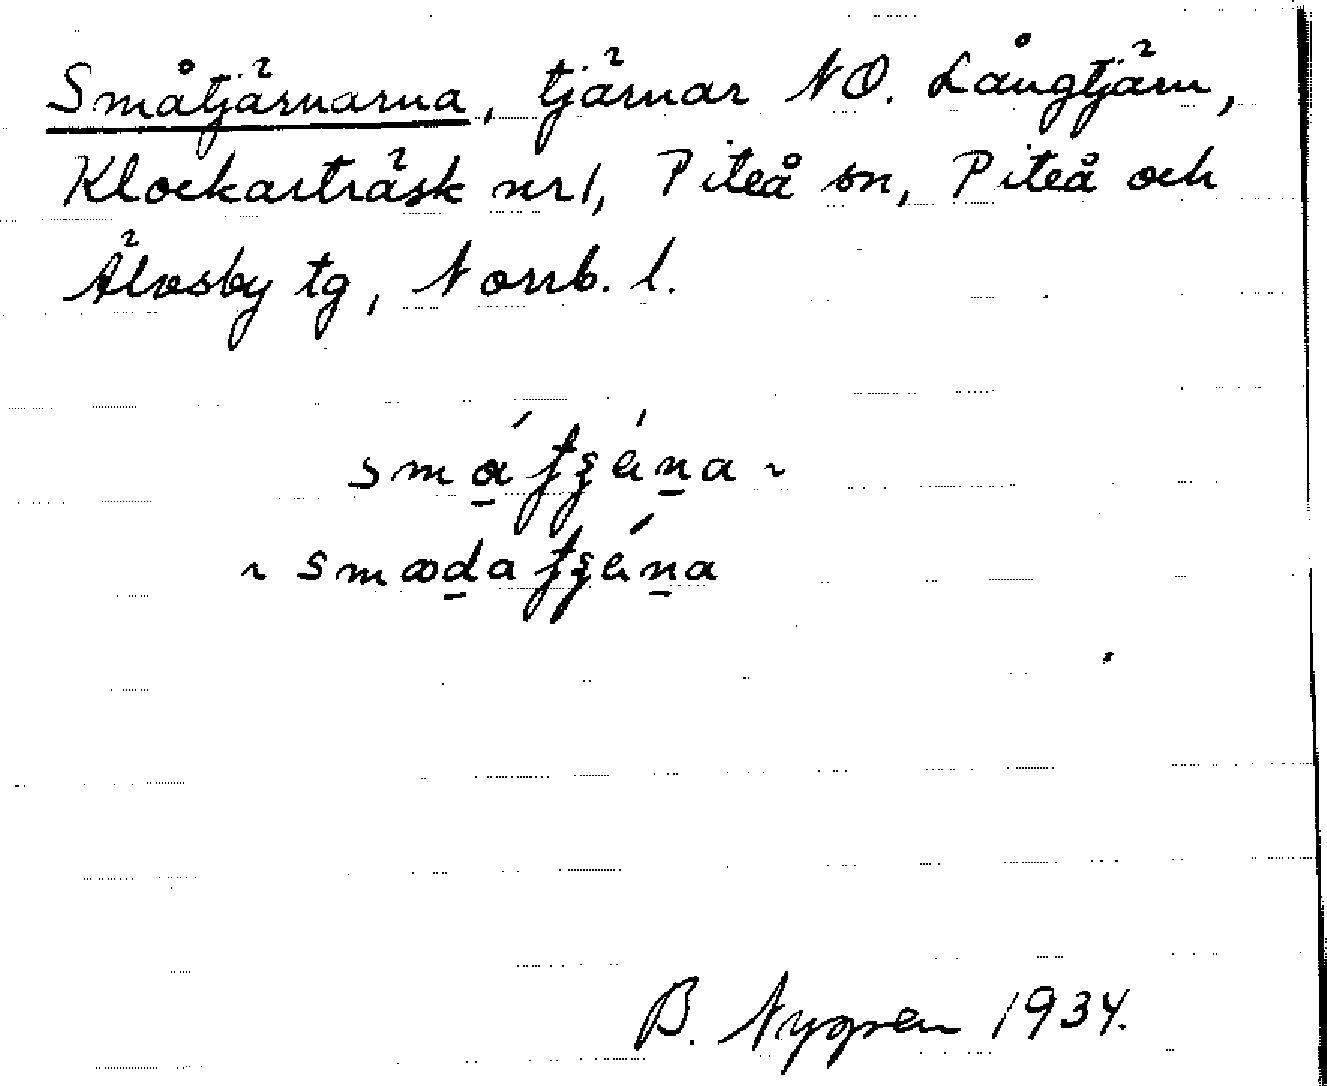 Småtjärnarna, tjärnar NO. Långtjärn,
Klockarträsk nr 1, Piteå sn, Piteå och
Älvsby tg, Norrb. l.
B. Nygren 1934.